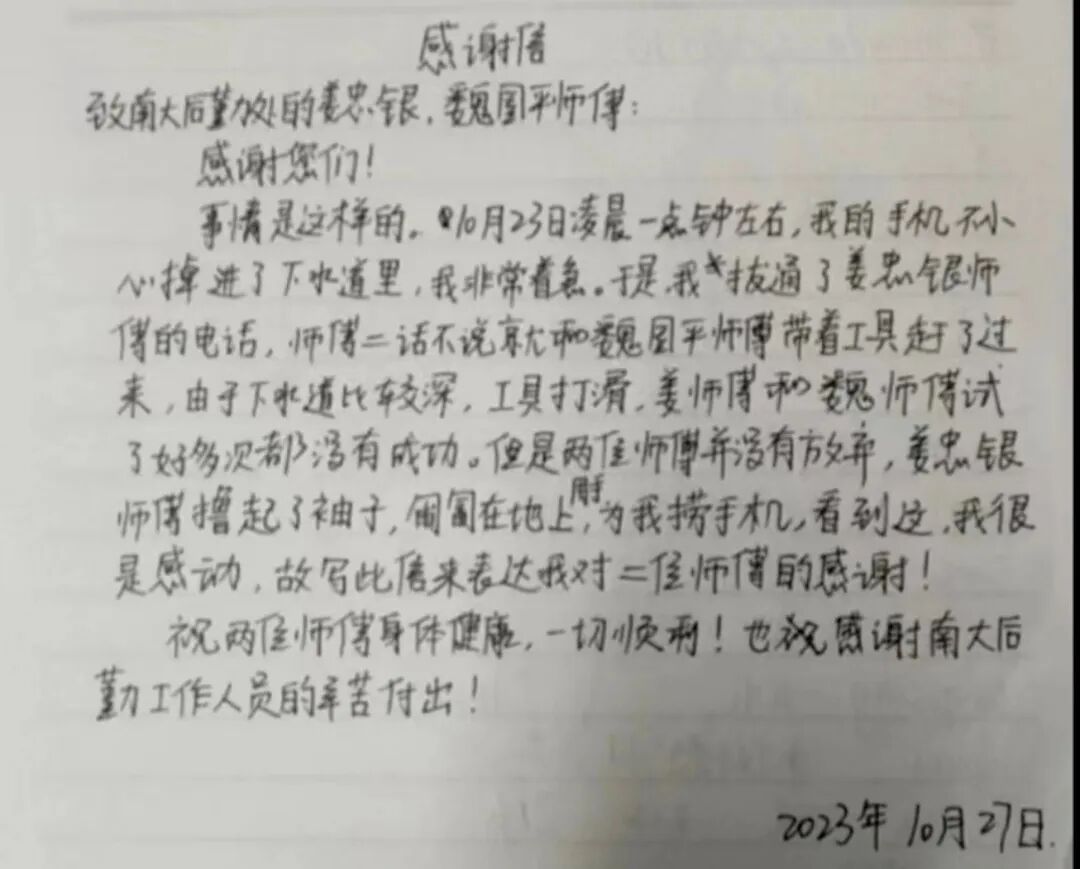 感谢信
致南大后勤处的姜忠银，魏国平师傅：
感谢您们！
事情是这样的。10月23日凌晨一点钟左右，我的手机不小
心掉进了下水道里，我非常着急。于是，我拨通了姜忠银师
傅的电话，师傅二话不说就和魏国平师傅带着工具赶了过
来，由于下水道比较深，工具打滑，姜师傅和魏师傅试
了好多次都没有成功。但是两位师傅并没有放弃，姜忠银
师傅撸起了袖子，匍匐在地上，用手为我捞手机，看到这，我很
是感动，故写此信来表达我对二位师傅的感谢！
祝两位师傅身体健康，一切顺利！也祝感谢南大后
勤工作人员的辛苦付出！
2023年10月27日.